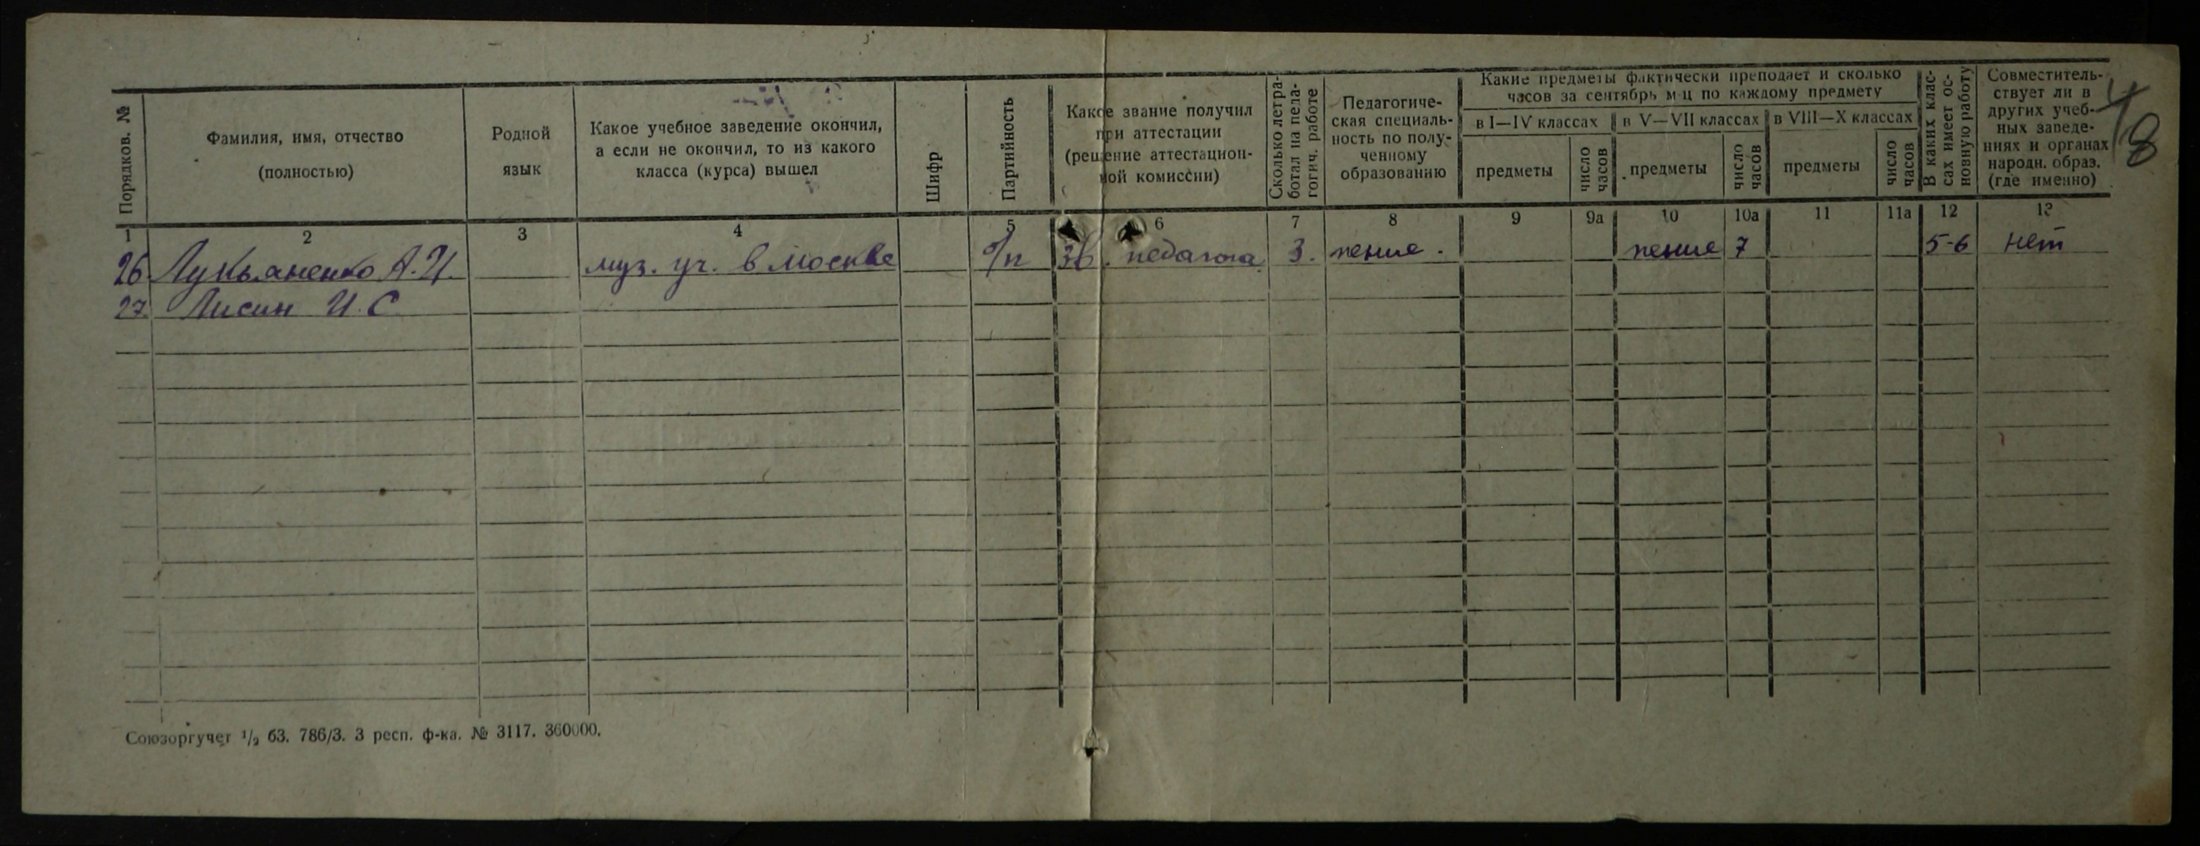 Порядков. №
Фамилия, имя, отчество
(полностью)
Родной
язык
Какое учебное заведение окончил,
а если не окончил, то из какого
класса (курса) вышел
Шифр
Партийность
Какое звание получил
при аттестации
(решение аттестацион-
ной комиссии)
Сколько лет ра-
ботал на педа-
гогич. работе
Педагогиче-
ская специаль-
ность по полу-
ченному
образованию
Какие предметы фактически преподает и сколько
часов за сентябрь м-ц по каждому предмету
в I—IV классах
предметы
число
часов
в V—VII классах
предметы
число
часов
в VIII—X классах
предметы
число
часов
В каких клас-
сах имеет ос-
новную работу
Совместитель-
ствует ли в
других учеб-
ных заведе-
ниях и органах
народн. образ.
(где именно)
48
1 2 3 4 5 6 7 8 9 9а 10 10а 11 11а 12 13
26 Лукьяненко А.И. муз. уч. в Москве б/п зв. педагога 3. пение. пение 7 5-6 нет
27. Лисин И.С.
Союзоргучет 1/2 63. 786/3. 3 респ. ф-ка. № 3117. 360000.